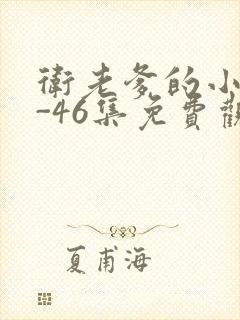 衛老爹的小
-46集免費觀
夏甫海